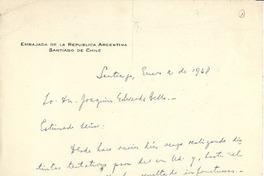 EMBAJADA DE LA REPUBLICA ARGENTINA
SANTIAGO DE CHILE
Santiago, Enero 2 de 1948
Sr. Dn. Joaquín Edwards Bello.-
Estimado señor:
Desde hace varios días vengo realizando dis
tintas tentativas para dar con Ud. y, hasta el